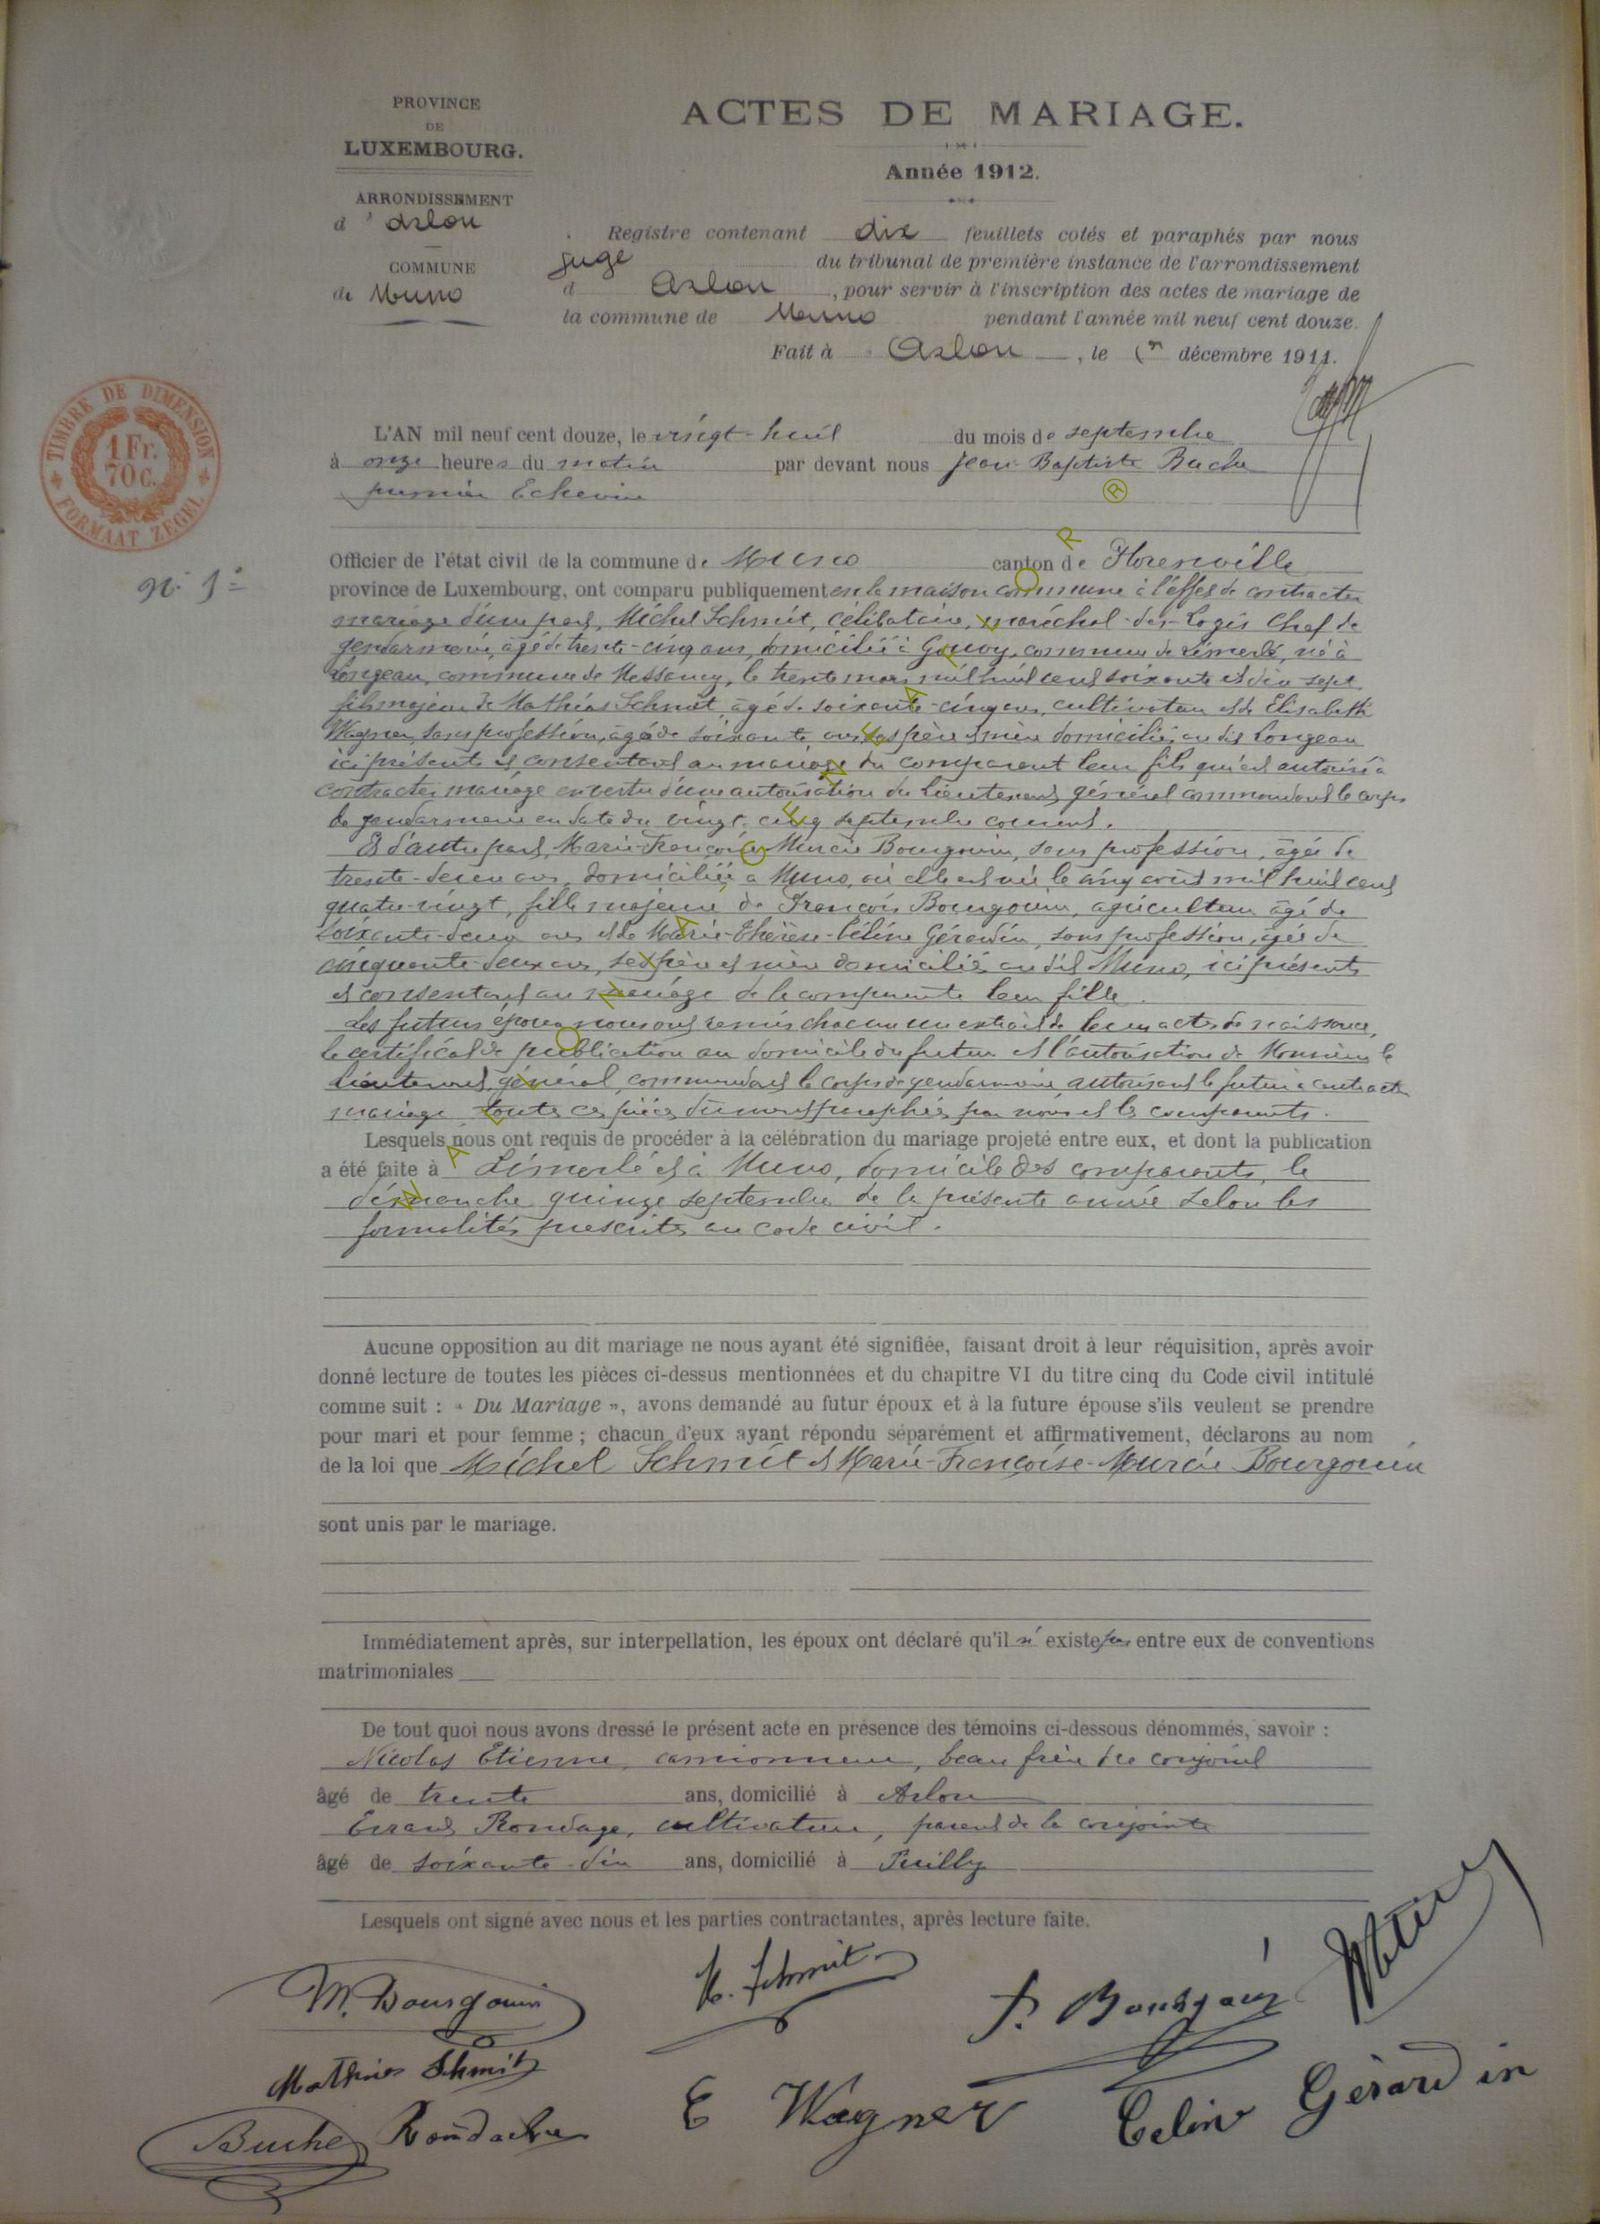 PROVINCE
DE
LUXEMBOURG.
ARRONDISSEMENT
d'Arlon
COMMUNE
de Muno
ACTES DE MARIAGE.
Année 1912.
Registre contenant dix feuillets cotés et paraphés par nous
juge du tribunal de première instance de l'arrondissement
d Arlon, pour servir à l'inscription des actes de mariage de
la commune de Muno pendant l'année mil neuf cent douze.
Fait à Arlon, le 1er décembre 1911.
TIMBRE DE DIMENSION
1 Fr.
70 C.
FORMAAT ZEGEL
L'AN mil neuf cent douze, le vingt-huit du mois de septembre
à onze heures du matin par devant nous Jean-Baptiste Buche
premier Echevin
Officier de l'état civil de la commune de Muno canton de Florenville
n. 1
province de Luxembourg, ont comparu publiquement en la maison commune à l'effet de contracter
mariage d'une part, Michel Schmit, célibataire, maréchal-des-Logis Chef de
gendarmerie, âgé de trente-cinq ans, domicilié à Gouvy, commune de Limerlé, né à
Longeau, commune de Messancy, le trente mars mil huit cent soixante et dix-sept
fils majeur de Mathias Schmit, âgé de soixante-cinq ans, cultivateur et de Elisabeth
Wagner, sans profession, âgée de soixante ans, ses père et mère domiciliés au dit Longeau
ici présents et consentant au mariage du comparant leur fils qui est autorisé à
contracter mariage en vertu d'une autorisation du Lieutenant général commandant le corps
de gendarmerie en date du vingt-cinq septembre courant.
Et d'autre part, Marie-Françoise-Murcie Bourgouin, sans profession, âgée de
trente-deux ans, domiciliée à Muno, où elle est née le cinq août mil huit cent
quatre-vingt, fille majeure de François Bourgouin, agriculteur âgé de
soixante-deux ans et de Marie-Thérèse-Céline Gérardin, sans profession, âgée de
cinquante-deux ans, ses père et mère domiciliés au dit Muno, ici présents
et consentant au mariage de la comparante leur fille.
Les futurs époux nous ont remis chacun un extrait de leurs actes de naissance,
le certificat de publication au domicile du futur et l'autorisation de Monsieur le
Lieutenant général commandant le corps de gendarmerie autorisant le futur à contracter
mariage, toutes ces pièces dûment paraphées par nous et les comparants.
Lesquels nous ont requis de procéder à la célébration du mariage projeté entre eux, et dont la publication
a été faite à Limerlé et à Muno, domicile des comparants, le
dimanche quinze septembre de la présente année selon les
formalités prescrites au code civil.
Aucune opposition au dit mariage ne nous ayant été signifiée, faisant droit à leur réquisition, après avoir
donné lecture de toutes les pièces ci-dessus mentionnées et du chapitre VI du titre cinq du Code civil intitulé
comme suit : « Du Mariage », avons demandé au futur époux et à la future épouse s'ils veulent se prendre
pour mari et pour femme ; chacun d'eux ayant répondu séparément et affirmativement, déclarons au nom
de la loi que Michel Schmit et Marie-Françoise-Murcie Bourgouin
sont unis par le mariage.
Immédiatement après, sur interpellation, les époux ont déclaré qu'il n'existe pas entre eux de conventions
matrimoniales
De tout quoi nous avons dressé le présent acte en présence des témoins ci-dessous dénommés, savoir :
Nicolas Etienne, camionneur, beau frère du conjoint
âgé de trente ans, domicilié à Arlon
Evrard Rondage, cultivateur, parent de la conjointe
âgé de soixante-dix ans, domicilié à Puilly
Lesquels ont signé avec nous et les parties contractantes, après lecture faite.
M. Bourgouin
M. Schmit
F. Bourgouin
Mathias Schmit
E Wagner
Celine Gérardin
Buche